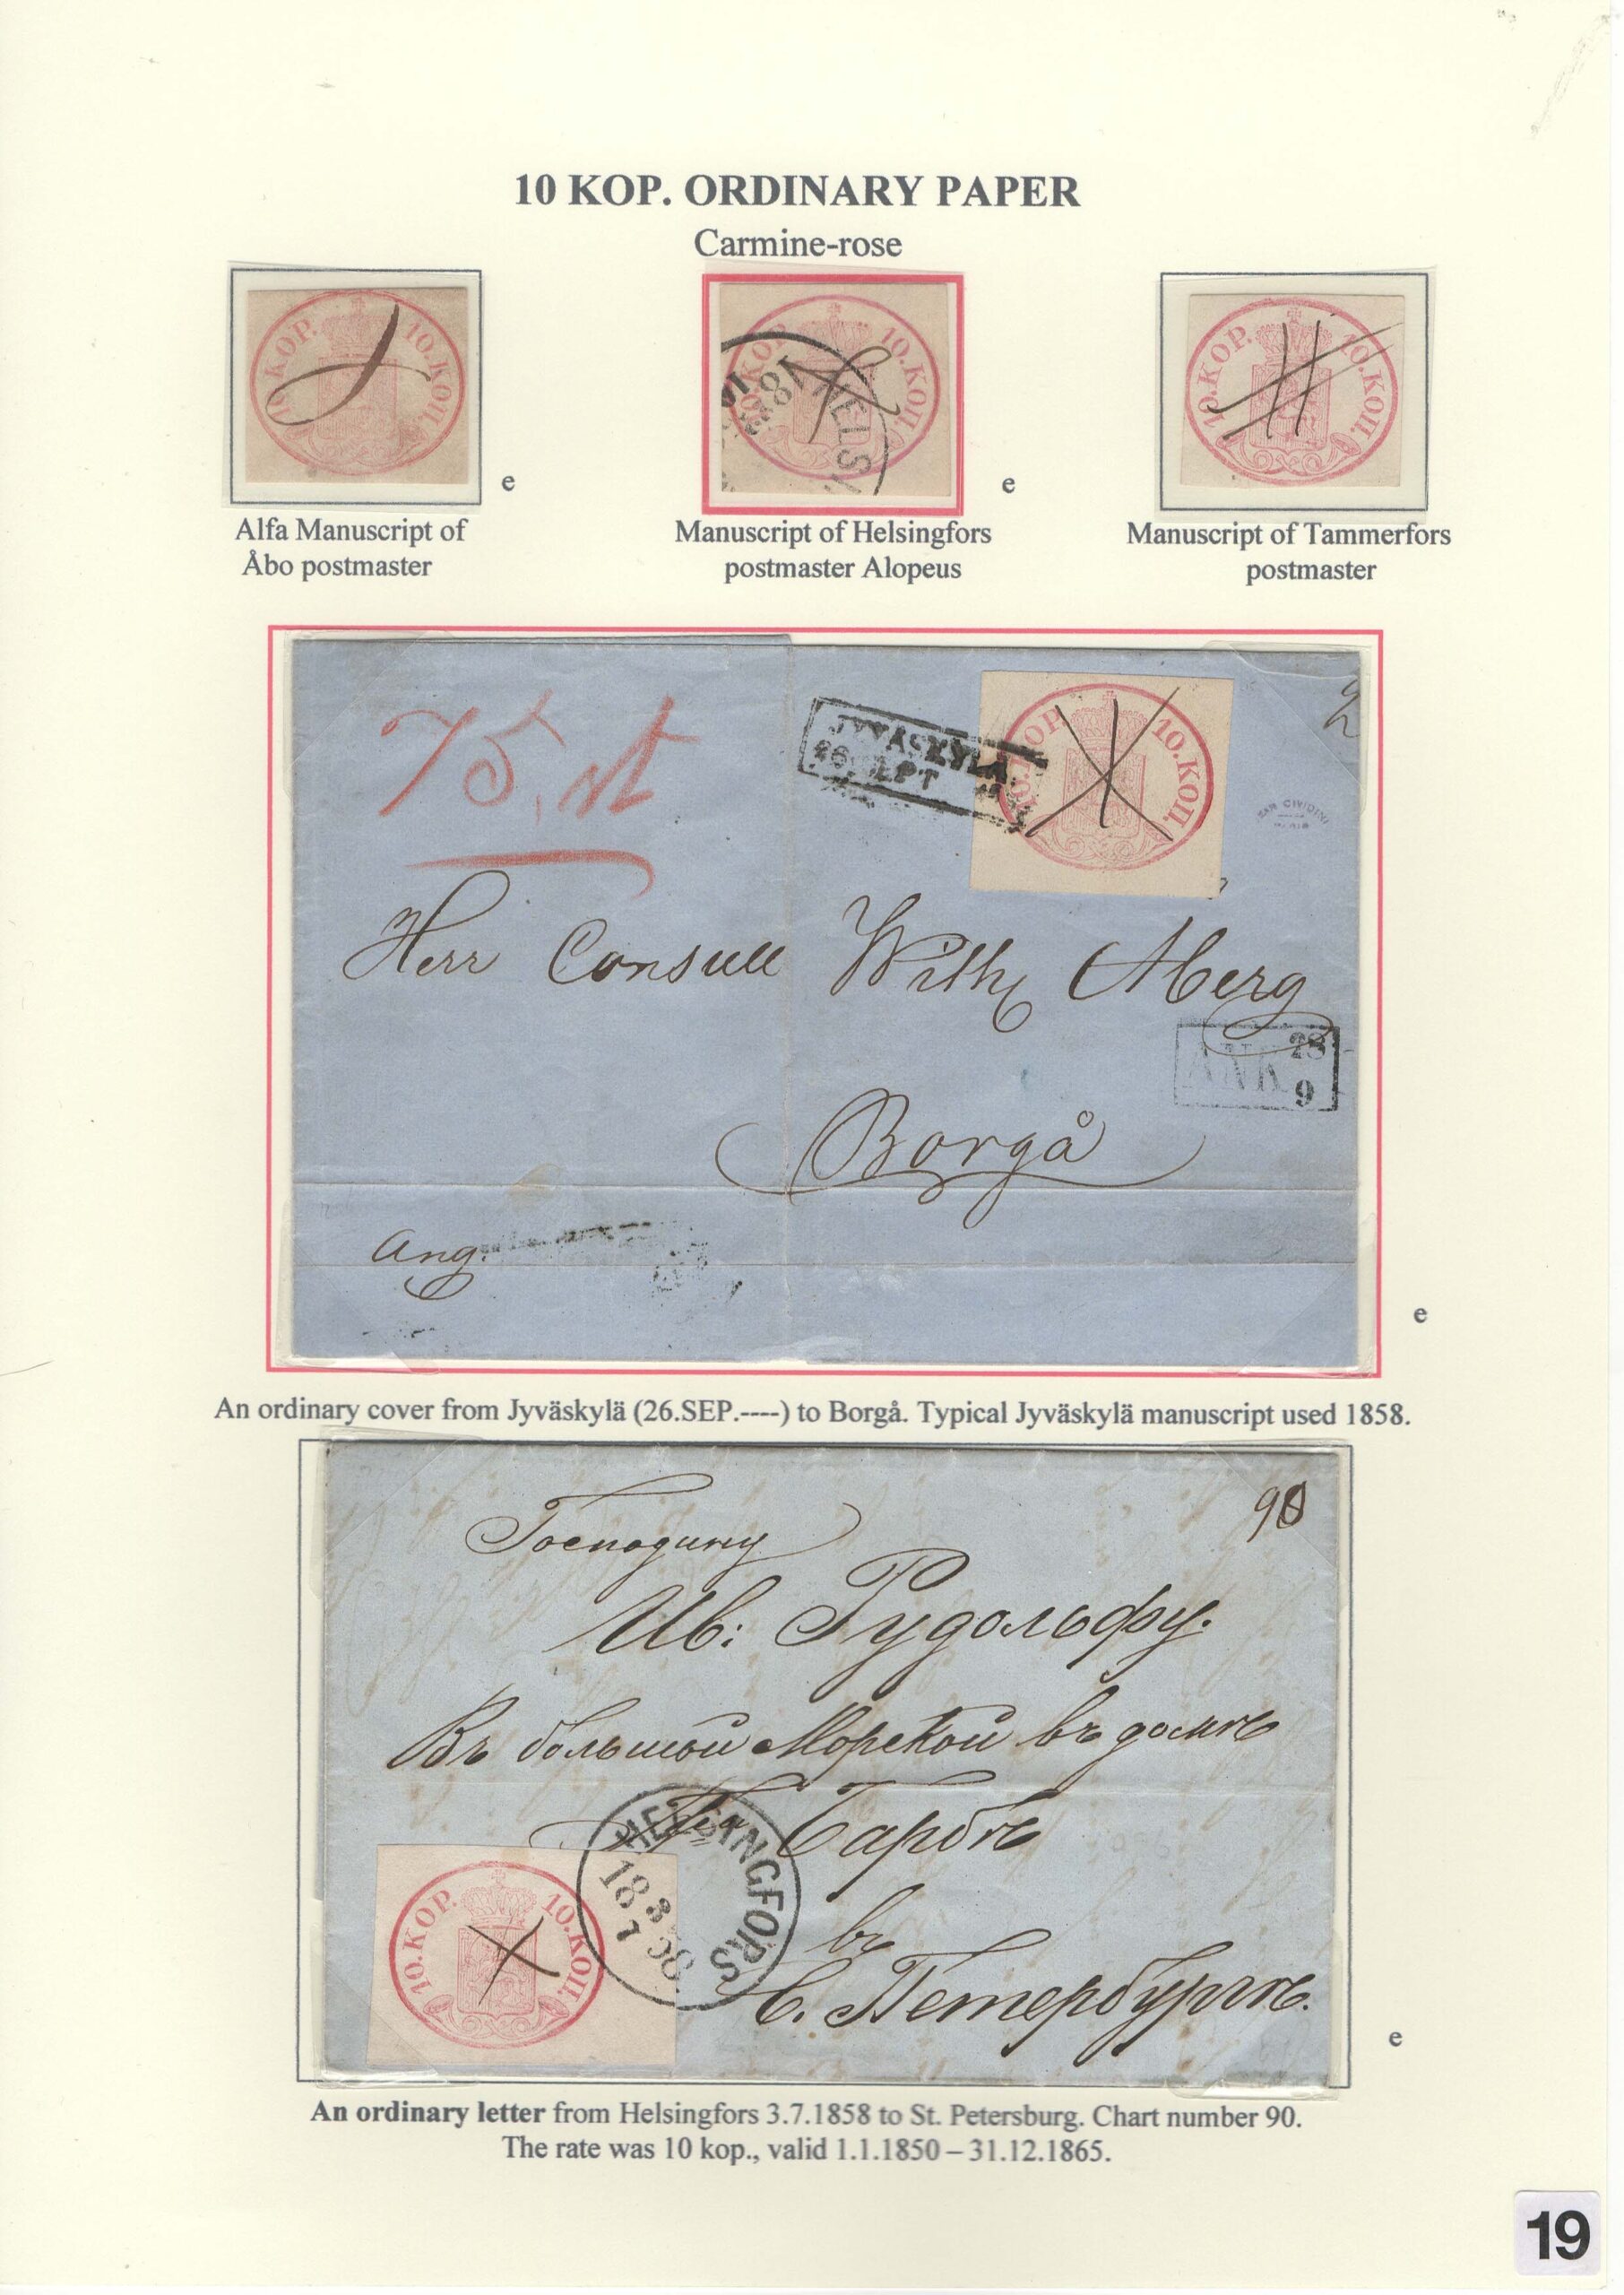 10 KOP. ORDINARY PAPER
Carmine-rose
10.KOP. 10.КОП.
e
Alfa Manuscript of
Åbo postmaster
10.KOP. 10.КОП.
HELSI
18
e
Manuscript of Helsingfors
postmaster Alopeus
10.KOP. 10.КОП.
Manuscript of Tammerfors
postmaster
75. st
JYVÄSKYLÄ
26 SEPT
10.KOP. 10.КОП.
2
Herr Consull Wilh Åberg
ANK 28
9
Borgå
Ang.
e
An ordinary cover from Jyväskylä (26.SEP.----) to Borgå. Typical Jyväskylä manuscript used 1858.
90
Господину
Ив: Рудольфу.
Въ большой Морской въ домѣ
Гна Барбѣ
HELSINGFORS
18 3 58
7
10.KOP. 10.КОП.
въ
С. Петербургѣ.
e
An ordinary letter from Helsingfors 3.7.1858 to St. Petersburg. Chart number 90.
The rate was 10 kop., valid 1.1.1850 – 31.12.1865.
19